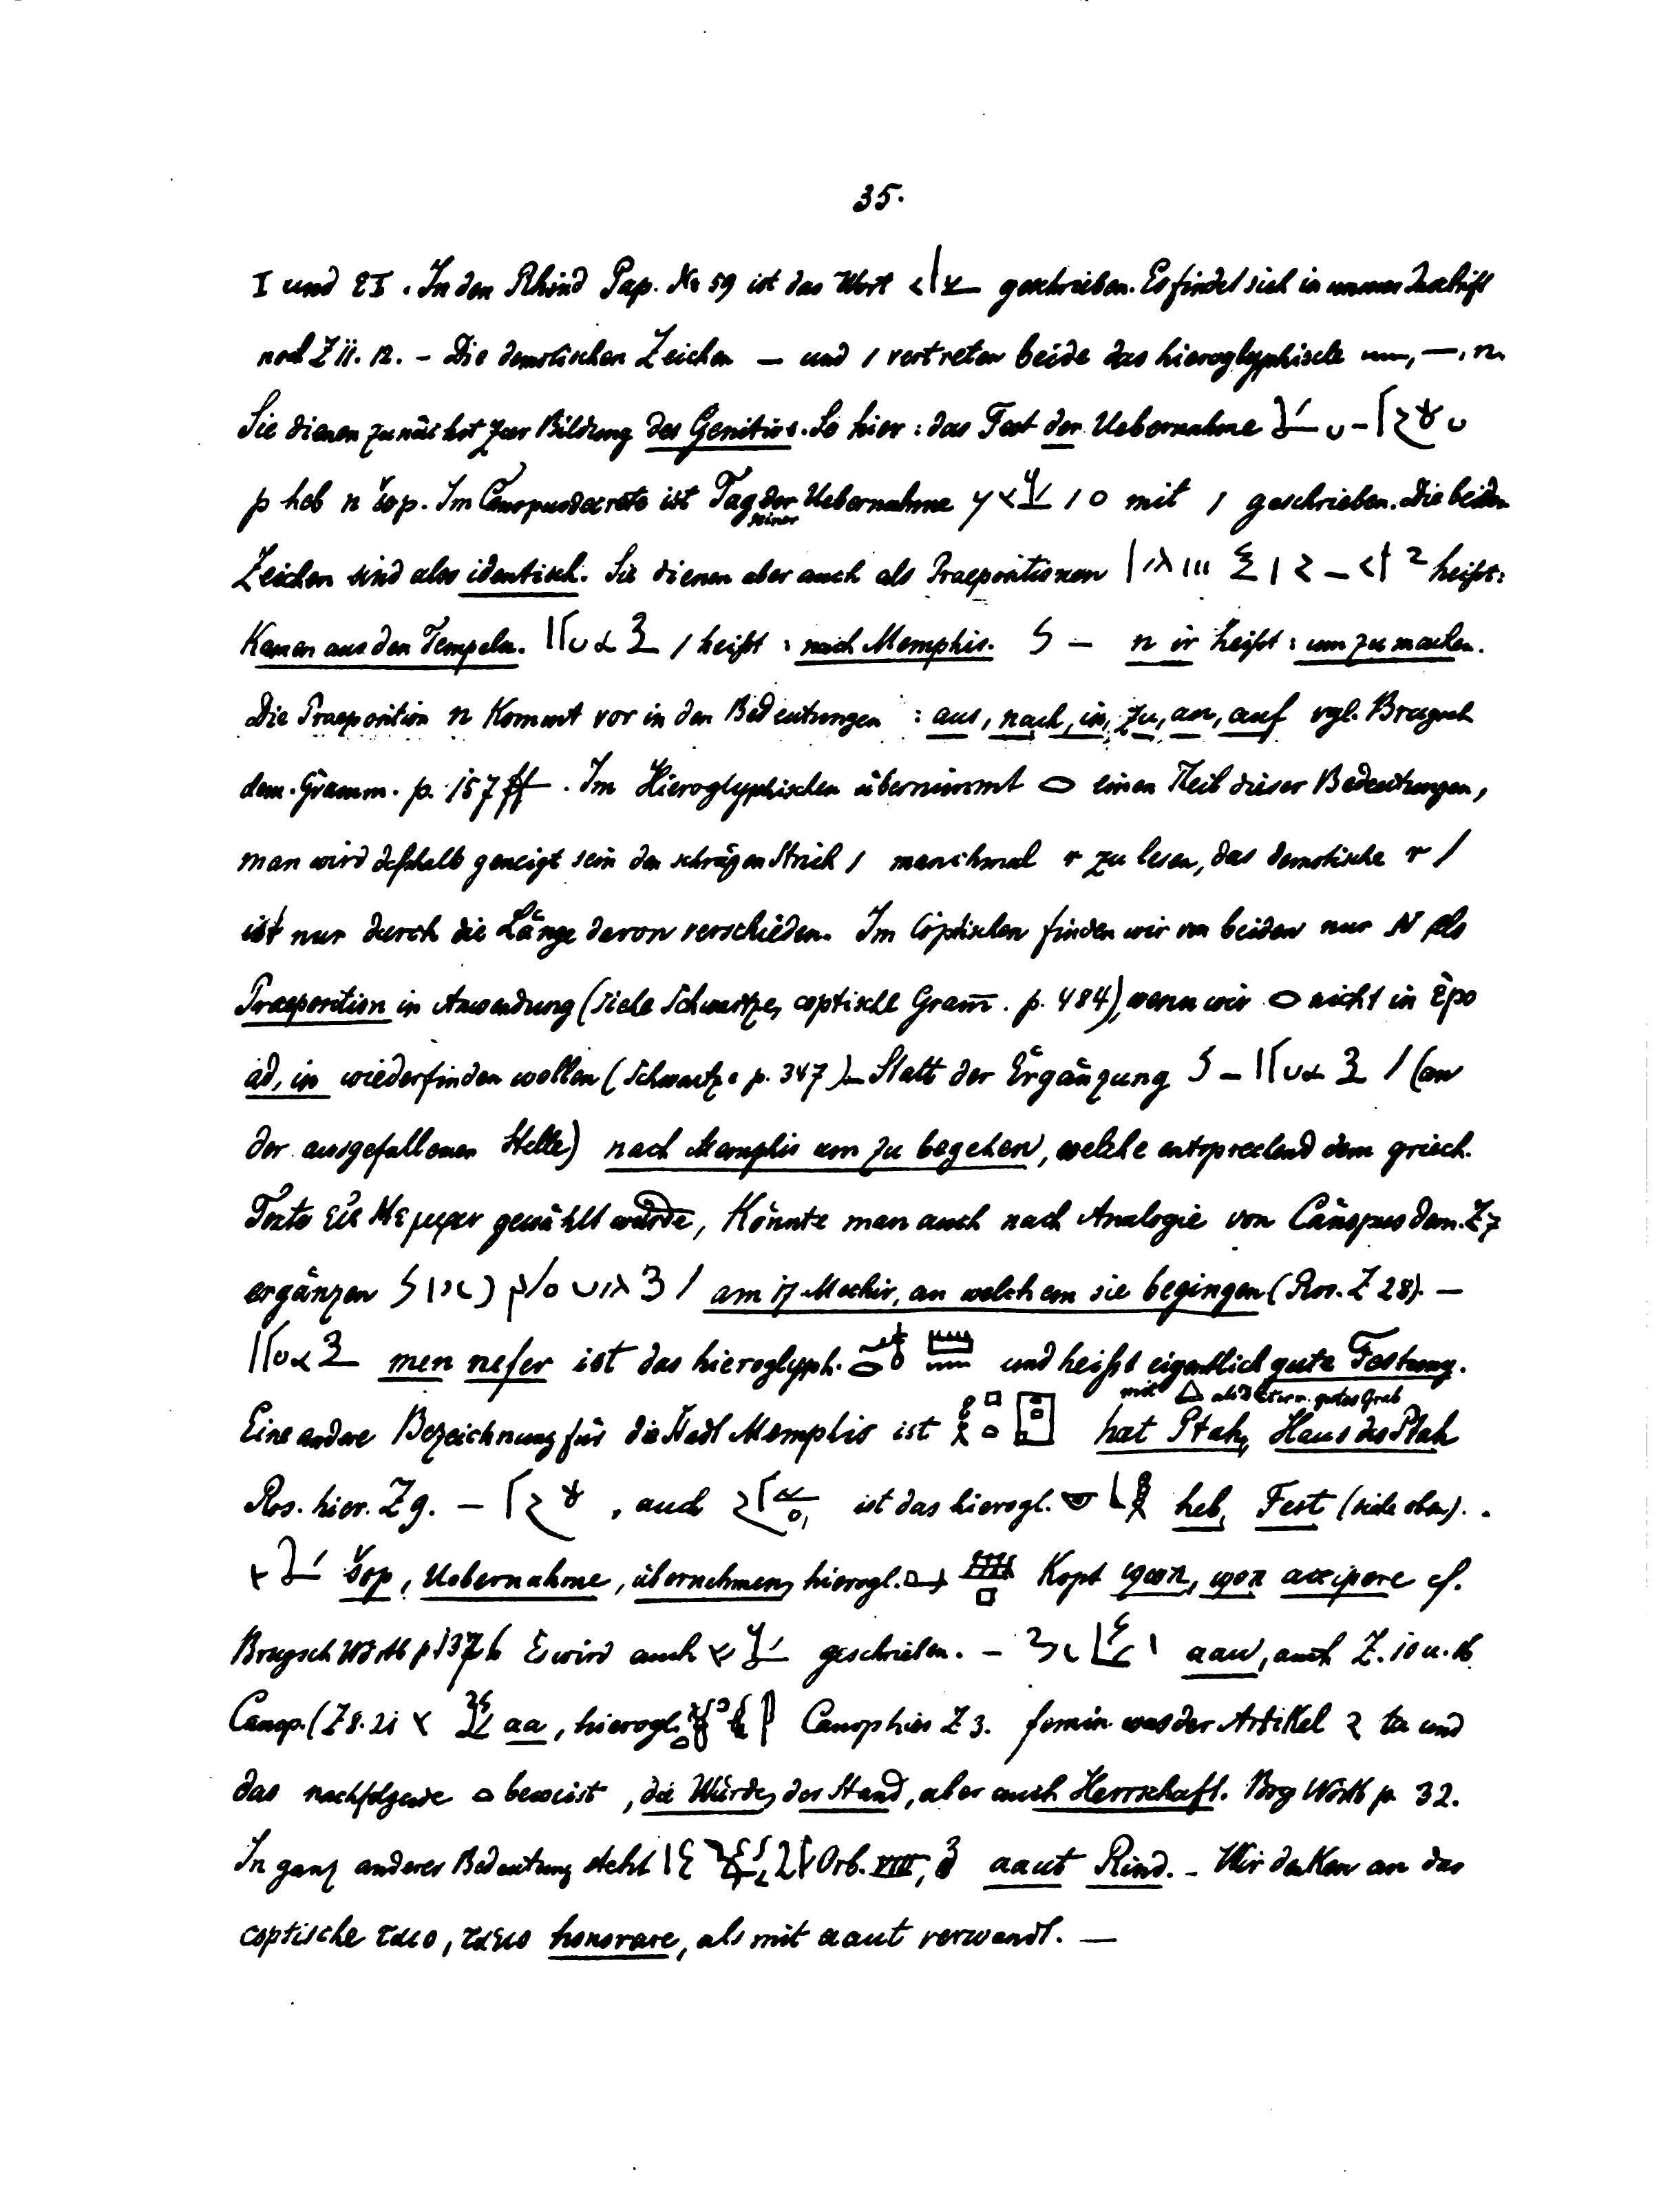 35.
I und II. In den Rhind Pap. No 59 ist das Wort geschrieben. Es findet sich in unserer Inschrift
noch Z 11. 12. – Die demotischen Zeichen – und / vertreten beide das hieroglyphische —, n.
Sie dienen zunächst zur Bildung des Genitivs. So hier: das Fest der Uebernahme
p heb n šop. Im Canopusdecrete ist Tag seiner Uebernahme mit / geschrieben. Die beiden
Zeichen sind also identisch. Sie dienen aber auch als Praepositionen heißt:
Kamen aus den Tempeln. heißt: nach Memphis. n ir heißt: um zu machen.
Die Praeposition n kommt vor in den Bedeutungen: aus, nach, in, zu, an, auf vgl. Brugsch
dem. Gramm. p. 157 ff. Im Hieroglyphischen übernimmt einen Theil dieser Bedeutungen,
man wird deßhalb geneigt sein den schrägen Strich / manchmal r zu lesen, das demotische r /
ist nur durch die Länge davon verschieden. Im Coptischen finden wir von beiden nur N als
Praeposition in Anwendung (siehe Schwartze, coptische Gram̄. p. 484), wenn wir nicht in Ⲉⲣⲟ
ad, in wiederfinden wollen (Schwartze p. 347). – Statt der Ergänzung / (an
der ausgefallenen Stelle) nach Memphis um zu begehen, welche entsprechend dem griech.
Texte εἰς Μεμφιν gewählt wurde, könnte man auch nach Analogie von Canopus dem. Z 7
ergänzen am 17 Mechir, an welchem sie begingen (Ros. Z 28). –
men nefer ist das hieroglyph. und heißt eigentlich gute Festung.
mit als Determ. gutes Grab
Eine andere Bezeichnung für die Stadt Memphis ist hat Ptah, Haus des Ptah
Ros. hier. Z 9. – , auch ist das hierogl. heb, Fest (siehe oben).
šop, Uebernahme, übernehmen, hierogl. Kopt ϣⲱⲡ, ϣⲟⲡ accipere cf.
Brugsch Wörtb p 137 Es wird auch geschrieben. – aau, auch Z. 10 u. 16
Canop. (Z 8. 21 aa, hierogl. Canop hier Z 3. femin. was der Artikel ta und
das nachfolgende beweist, die Würde, der Stand, aber auch Herrschaft. Brg Wörtb p. 32.
In ganz anderer Bedeutung steht Orb. aaut Rind. – Wir denken an das
coptische ⲧⲁⲓⲟ, ⲧⲁⲉⲓⲟ honorare, als mit aaut verwandt. –